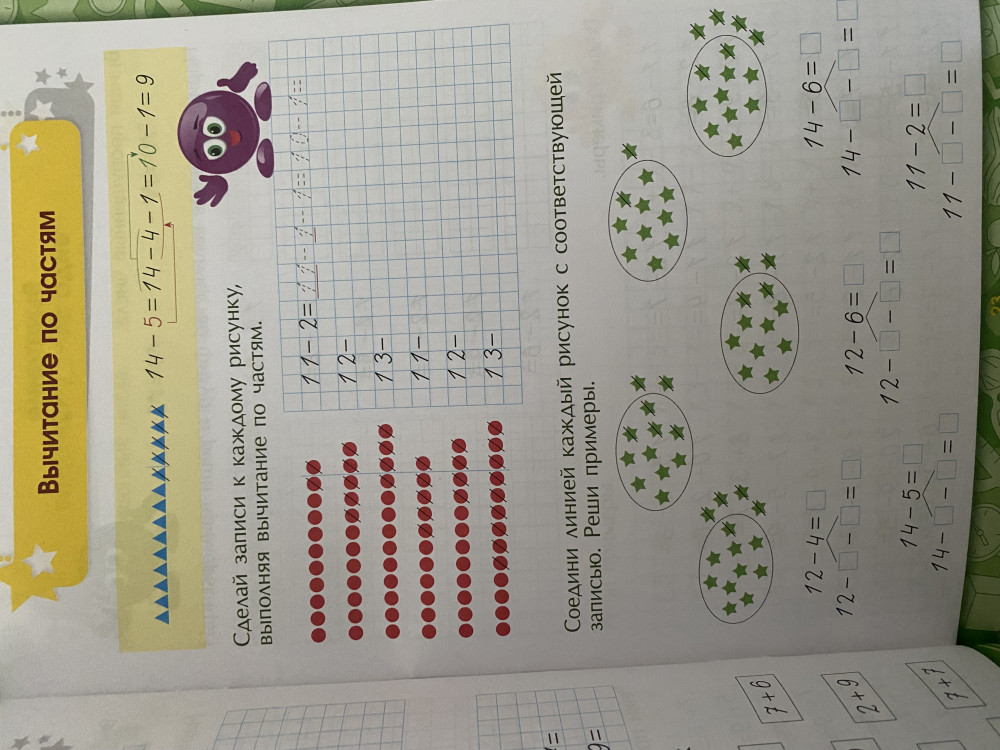 Вычитание по частям
14 – 5 = 14 – 4 – 1 = 10 – 1 = 9
Сделай записи к каждому рисунку,
выполняя вычитание по частям.
11 – 2 = 11 – 1 – 1 = 10 – 1 =
12 –
13 –
11 –
12 –
13 –
Соедини линией каждый рисунок с соответствующей
записью. Реши примеры.
12 – 4 = □
12 – □ – □ = □
12 – 6 = □
12 – □ – □ = □
14 – 6 = □
14 – □ – □ = □
14 – 5 = □
14 – □ – □ = □
11 – 2 = □
11 – □ – □ = □
7 + 6
2 + 9
7 + 7
9 =